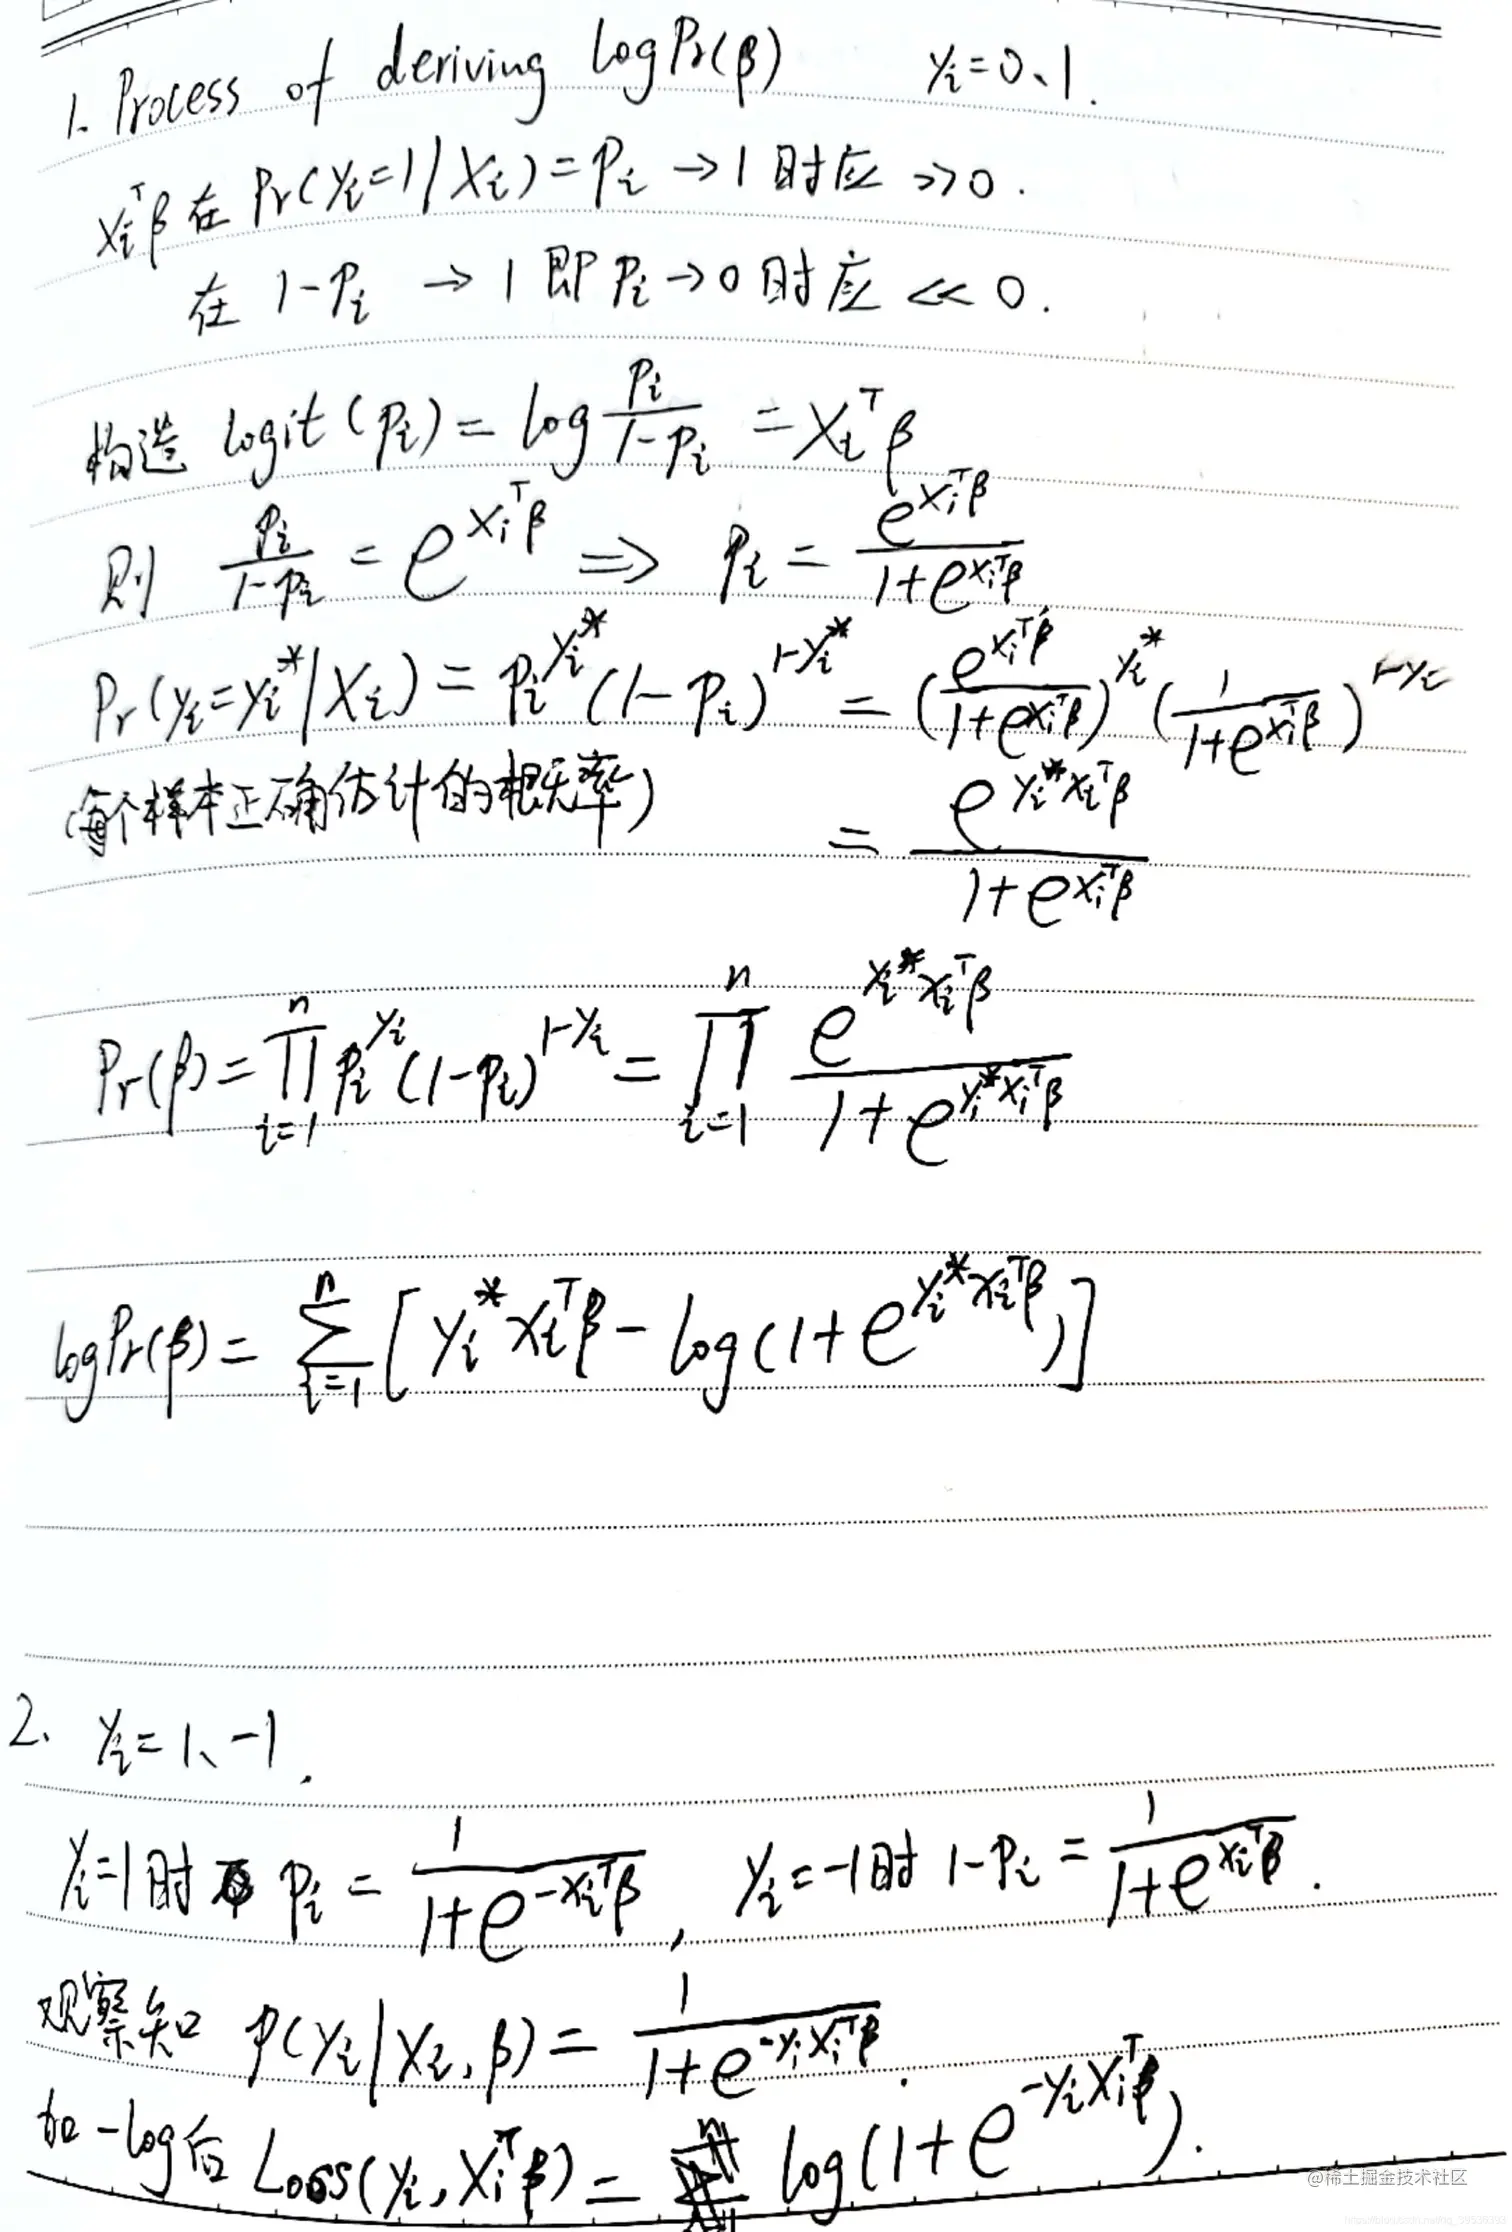 1. Process of deriving logPr(β) yᵢ=0、1.
xᵢᵀβ 在 Pr(yᵢ=1|Xᵢ)=Pᵢ → 1 时应 >>0.
在 1-Pᵢ → 1 即 Pᵢ→0 时应 << 0.
构造 logit(pᵢ) = log pᵢ/(1-pᵢ) = Xᵢᵀβ
则 pᵢ/(1-pᵢ) = e^(Xᵢᵀβ) ⟹ pᵢ = e^(Xᵢᵀβ)/(1+e^(Xᵢᵀβ))
Pr(yᵢ=yᵢ*|Xᵢ) = pᵢ^(yᵢ*) (1-pᵢ)^(1-yᵢ*) = (e^(Xᵢᵀβ)/(1+e^(Xᵢᵀβ)))^(yᵢ*) (1/(1+e^(Xᵢᵀβ)))^(1-yᵢ)
(每个样本正确估计的概率) = e^(yᵢ*Xᵢᵀβ)/(1+e^(Xᵢᵀβ))
Pr(β) = ∏_(i=1)^n pᵢ^(yᵢ) (1-pᵢ)^(1-yᵢ) = ∏_(i=1)^n e^(yᵢ*xᵢᵀβ)/(1+e^(yᵢ*Xᵢᵀβ))
logPr(β) = ∑_(i=1)^n [yᵢ*xᵢᵀβ - log(1+e^(yᵢ*xᵢᵀβ))]
2. yᵢ=1、-1.
yᵢ=1时 pᵢ = 1/(1+e^(-xᵢᵀβ)), yᵢ=-1时 1-pᵢ = 1/(1+e^(xᵢᵀβ)).
观察知 P(yᵢ|xᵢ,β) = 1/(1+e^(-yᵢXᵢᵀβ)).
加-log后 Loss(yᵢ,Xᵢᵀβ) = log(1+e^(-yᵢXᵢᵀβ)).
@稀土掘金技术社区